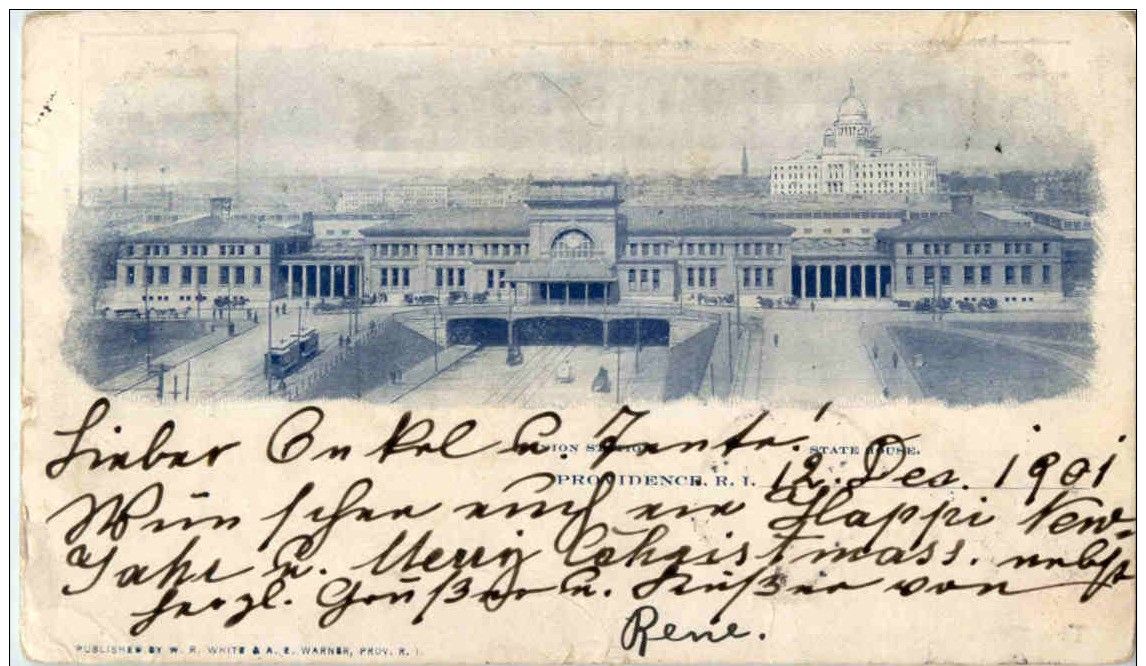 Lieber Onkel u. Tante!
UNION STATION. STATE HOUSE.
PROVIDENCE, R. I. 12. Dec. 1901
Wünschen euch ein Happi New-
Jahr u. Merry Chhristmass. nebst
herzl. Grüßen u. Küßen von
Rene.
PUBLISHED BY W. R. WHITE & A. E. WARNER, PROV. R. I.